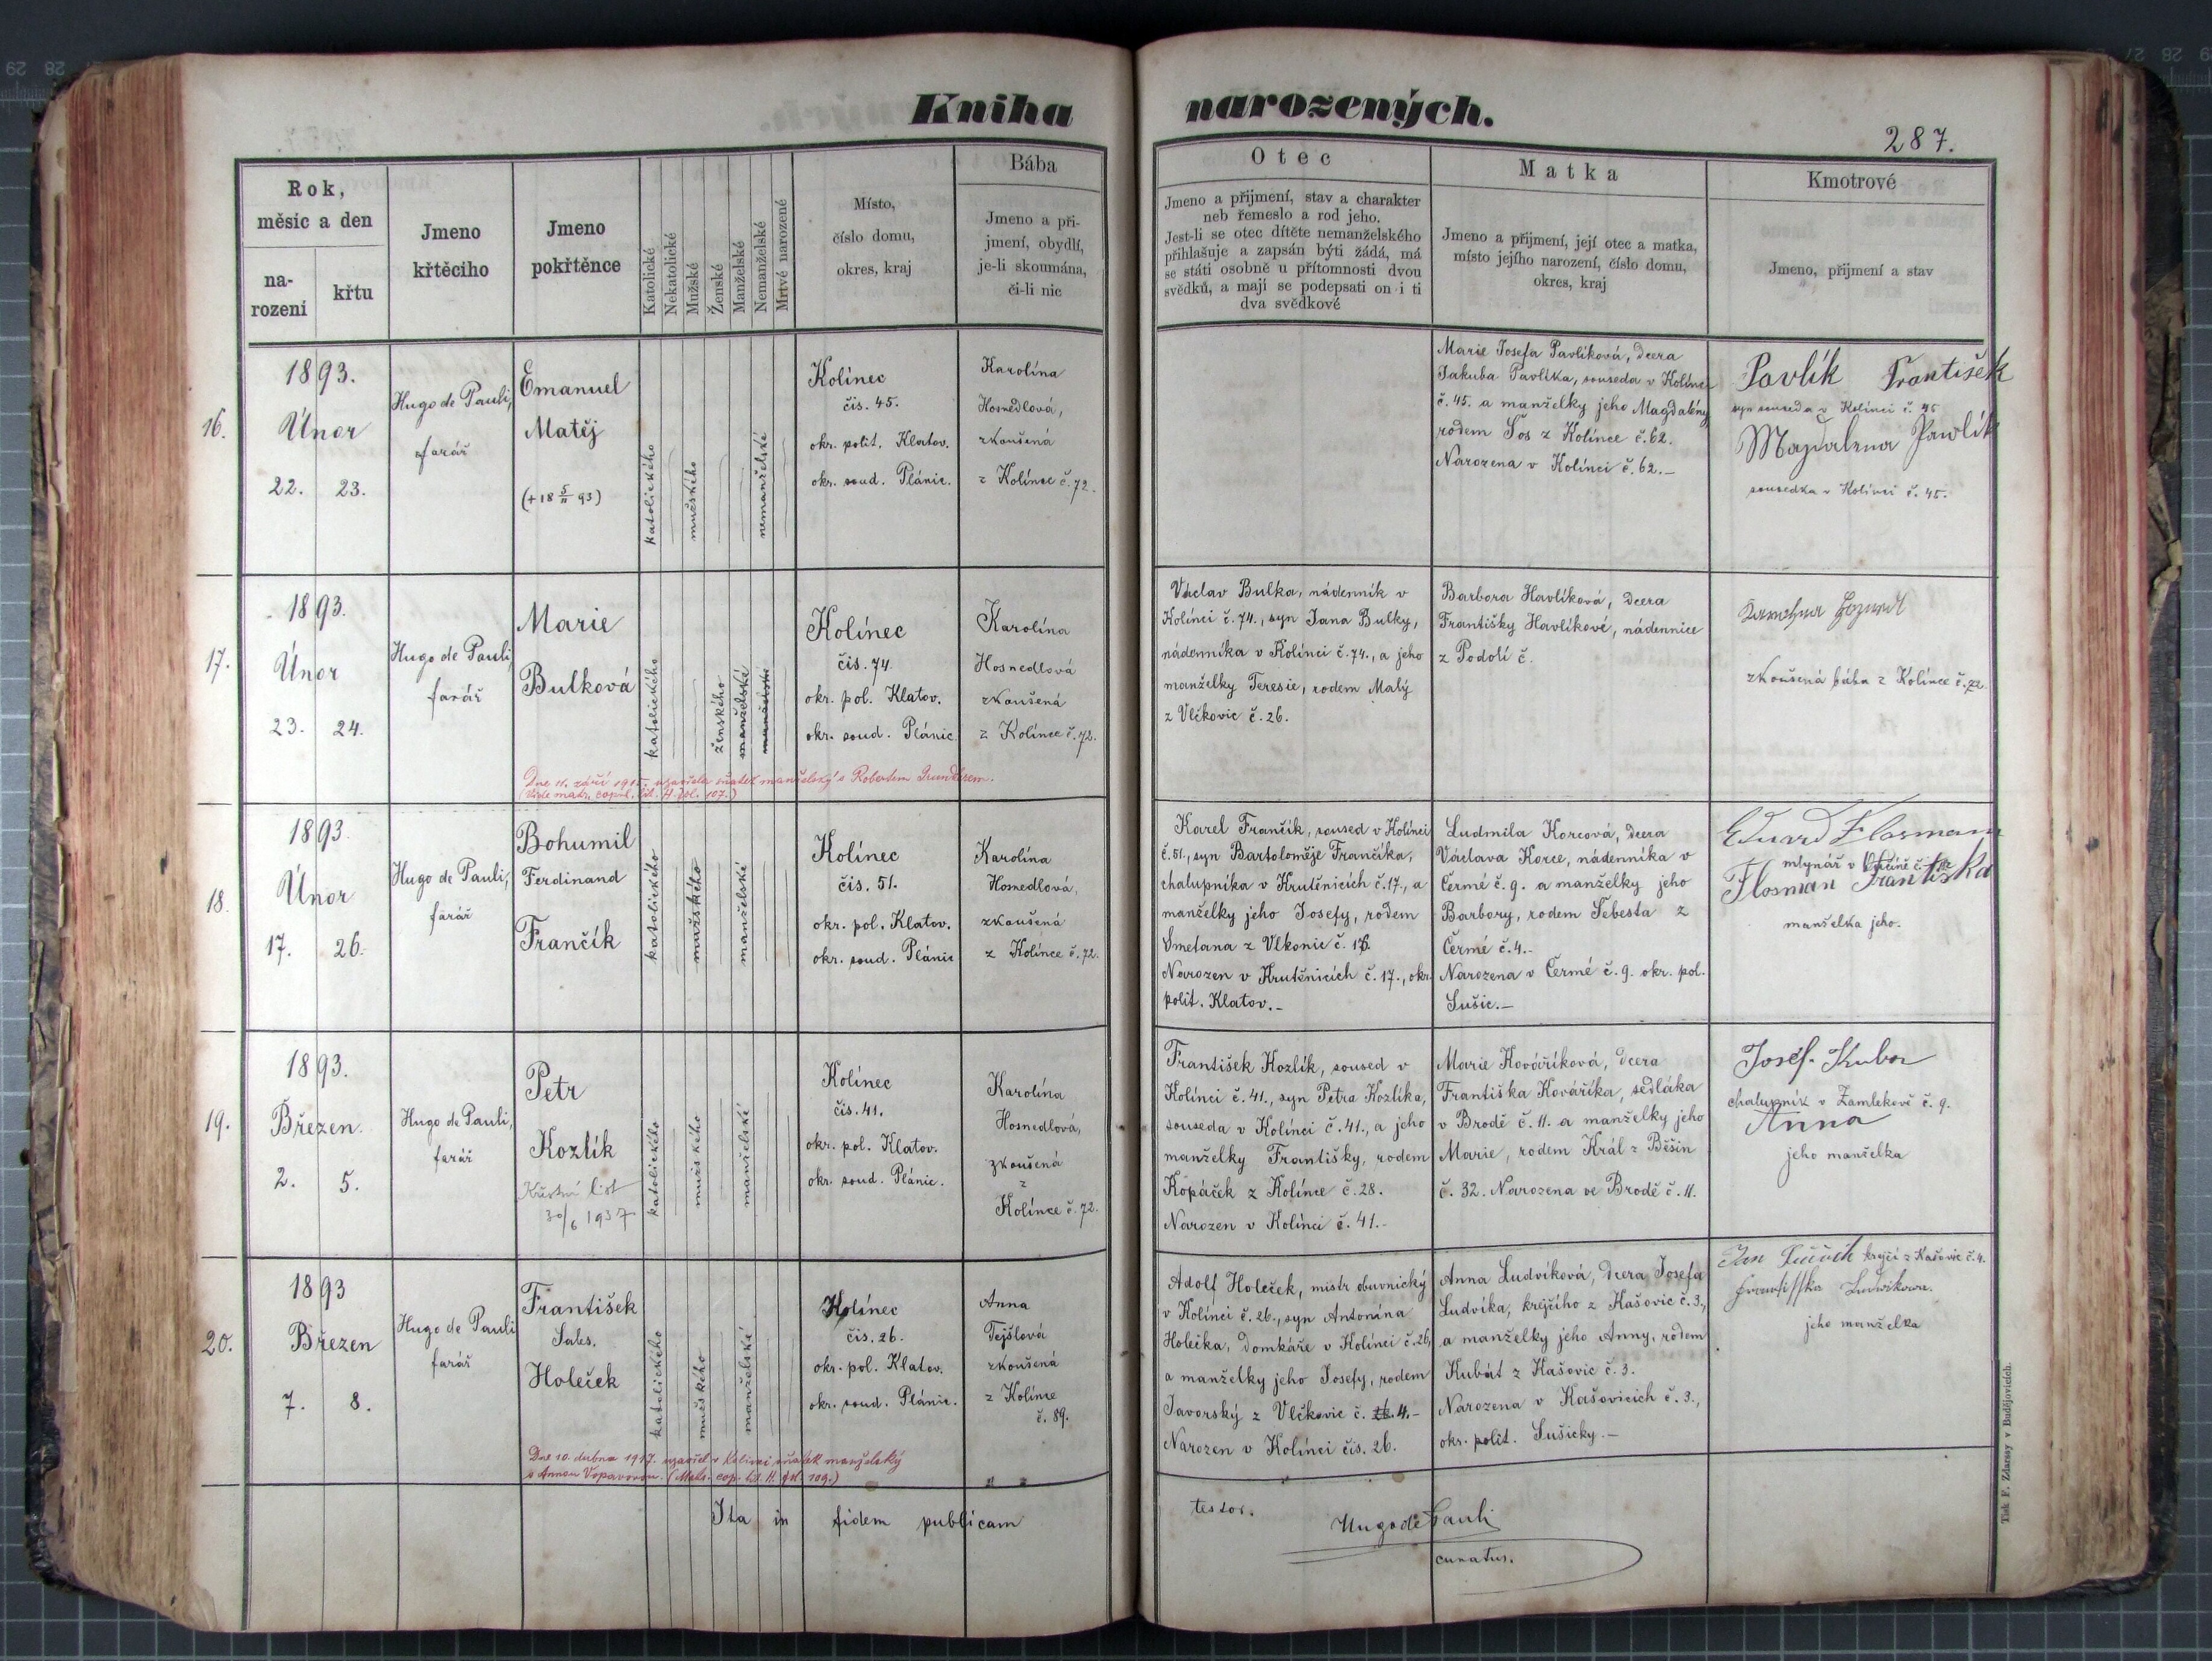 Kniha narozených.
287.
Rok,
měsíc a den
na-
rození
křtu
Jmeno
křtěciho
Jmeno
pokřtěnce
Katolické
Nekatolické
Mužské
Ženské
Manželské
Nemanželské
Mrtvé narozené
Místo,
číslo domu,
okres, kraj
Bába
Jmeno a při-
jmení, obydlí,
je-li skoumána,
či-li nic
Otec
Jmeno a přijmení, stav a charakter
neb řemeslo a rod jeho.
Jest-li se otec dítěte nemanželského
přihlašuje a zapsán býti žádá, má
se státi osobně u přítomnosti dvou
svědků, a mají se podepsati on i ti
dva svědkové
Matka
Jmeno a přijmení, její otec a matka,
místo jejího narození, číslo domu,
okres, kraj
Kmotrové
Jmeno, přijmení a stav
16.
1893.
Únor
22. 23.
Hugo de Pauli,
farář
Emanuel
Matěj
(+ 18 5/11 93)
katolického
mužského
nemanželské
Kolínec
čís. 45.
okr. polit. Klatov.
okr. soud. Plánic.
Karolína
Hosnedlová,
zkoušená
z Kolínce č. 72.
Marie Josefa Pavlíková, dcera
Jakuba Pavlíka, souseda v Kolínci
č. 45. a manželky jeho Magdalény
rodem Šos z Kolínce č. 62.
Narozena v Kolínci č. 62.–
Pavlík František
syn souseda v Kolínci č. 45
Magdalena Pawlik
sousedka v Kolínci č. 45.
17.
1893.
Únor
23. 24.
Hugo de Pauli
farář
Marie
Bulková
katolického
ženského
manželské
Kolínec
čís. 74.
okr. pol. Klatov.
okr. soud. Plánic.
Karolína
Hosnedlová
zkoušená
z Kolínce č. 72.
Václav Bulka, nádenník v
Kolínci č. 74., syn Jana Bulky,
nádenníka v Kolínci č. 74., a jeho
manželky Teresie, rodem Malý
z Vlčkovic č. 26.
Barbora Havlíková, dcera
Františky Havlíkové, nádennice
z Podolí č.
zkoušená bába z Kolínce č. 72.
Dne 11. září 1915. uzavřela sňatek manželský s Robertem
(Vide matr. copul. lit. H. fol. 107.)
18.
1893.
Únor
17. 26.
Hugo de Pauli,
farář
Bohumil
Ferdinand
Frančík
katolického
mužského
manželské
Kolínec
čís. 51.
okr. pol. Klatov.
okr. soud. Plánic
Karolína
Hosnedlová,
zkoušená
z Kolínce č. 72.
Karel Frančík, soused v Kolínci
č. 51., syn Bartoloměje Frančíka,
chalupníka v Hrutěnicích č. 17., a
manželky jeho Josefy, rodem
Smetana z Vlkonic č. 16.
Narozen v Hrutěnicích č. 17., okr.
polit. Klatov.–
Ludmila Korcová, dcera
Václava Korce, nádenníka v
Čermé č. 9. a manželky jeho
Barbory, rodem Šebesta z
Čermé č. 4.–
Narozena v Čermé č. 9. okr. pol.
Sušic.–
Eduard Flosmann
mlynář v
Flosman Františka
manželka jeho.
19.
1893.
Březen.
2. 5.
Hugo de Pauli,
farář
Petr
Kozlík
Křestní list
30/6 1937
katolického
mužského
manželské
Kolínec
čís. 41.
okr. pol. Klatov.
okr. soud. Plánic.
Karolína
Hosnedlová,
zkoušená
z
Kolínce č. 72.
František Kozlík, soused v
Kolínci č. 41., syn Petra Kozlíka,
souseda v Kolínci č. 41., a jeho
manželky Františky, rodem
Kopáček z Kolínce č. 28.
Narozen v Kolínci č. 41.–
Marie Kováříková, dcera
Františka Kováříka, sedláka
v Brodě č. 11. a manželky jeho
Marie, rodem Král z Běšin
č. 32. Narozena ve Brodě č. 11.
Josef Kuba
chalupník v Zamlekově č. 9.
Anna
jeho manželka
20.
1893
Březen
7. 8.
Hugo de Pauli
farář
František
Sales.
Holeček
katolického
mužského
manželské
Kolínec
čís. 26.
okr. pol. Klatov.
okr. soud. Plánic.
Anna
Tejšlová
zkoušená
z Kolínce
č. 89.
Adolf Holeček, mistr obuvnický
v Kolínci č. 26., syn Antonína
Holečka, domkáře v Kolínci č. 26,
a manželky jeho Josefy, rodem
Javorský z Vlčkovic č. 4.–
Narozen v Kolínci čís. 26.
Anna Ludvíková, dcera Josefa
Ludvíka, krejčího z Kašovic č. 3.,
a manželky jeho Anny, rodem
Kubát z Kašovic č. 3.
Narozena v Kašovicích č. 3.,
okr. polit. Sušicky.–
Jan krejčí z Kašovic č. 4.
Frantisska Ludwikowa.
jeho manželka
Dne 10. dubna 1917. uzavřel v Kolinci sňatek manželský
s Annou Vopavovou. (Matr. cop. lit. H. fol. 109.)
Ita in fidem publicam testor.
Hugo de Pauli
curatus.
Tisk F. Zdarssy v Budějovicích.